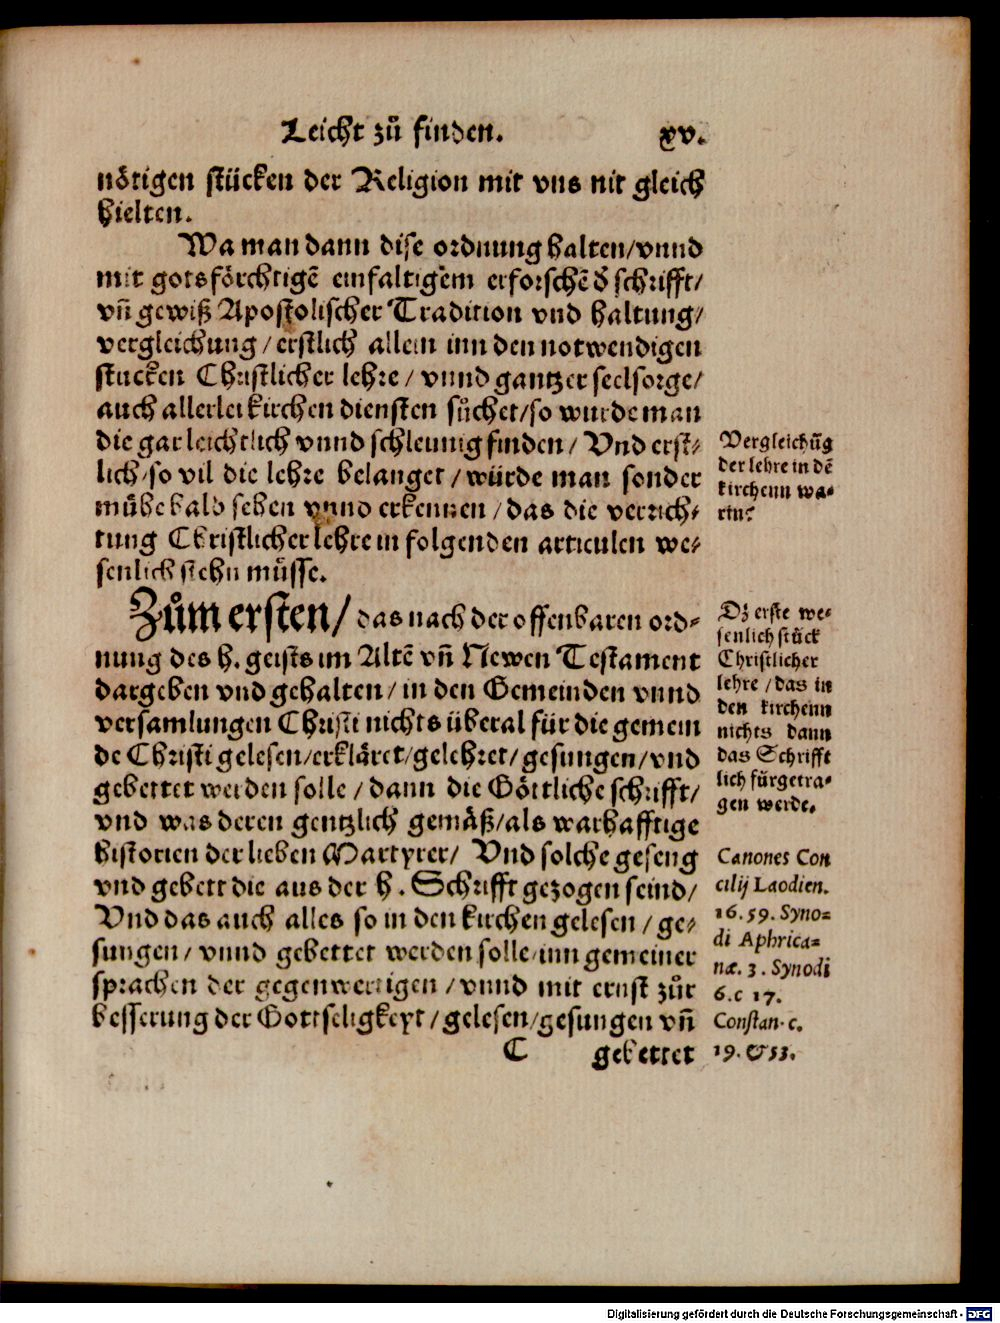 Leicht zů finden. xv.
nötigen stücken der Religion mit vns nit gleich
hielten.
Wa man dann dise ordnung halten/vnnd
mit gotsförchtigẽ einfaltigem erforschẽ d̓ schrifft/
vñ gewiß Apostolischer Tradition vnd haltung/
vergleichung/erstlich allein inn den notwendigen
stucken Christlicher lehre/vnnd gantzer seelsorge/
auch allerlei kirchen diensten sůchet/so wurde man
die gar leichtlich vnnd schleunig finden/Vnd erst⸗
lich/so vil die lehre belanget/würde man sonder
mühe bald sehen vnnd erkennen/das die verrich⸗
tung Christlicher lehre in folgenden articulen we⸗
senlich stehn müsse.
Zům ersten/das nach der offenbaren ord⸗
nung des h. geists im Altẽ vñ Newen Testament
dargeben vnd gehalten/in den Gemeinden vnnd
versamlungen Christi nichts überal für die gemein
de Christi gelesen/erkläret/gelehret/gesungen/vnd
gebettet werden solle/dann die Göttliche schrifft/
vnd was deren gentzlich gemäß/als warhafftige
historien der lieben Martyrer/Vnd solche geseng
vnd gebett die aus der H. Schrifft gezogen seind/
Vnd das auch alles so in den kirchen gelesen/ge⸗
sungen/vnnd gebettet werden solle/inn gemeiner
sprachen der gegenwertigen/vnnd mit ernst zůr
besserung der Gottseligkeyt/gelesen/gesungen vñ
C gebettet
Vergleichũg
der lehre in dẽ
kirchenn wa⸗
rin?
Dz erste we⸗
senlich stück
Christlicher
lehre/das in
den kirchenn
nichts dann
das Schrifft
lich fürgetra⸗
gen werde.
Canones Con
cilij Laodien.
16. 59. Syno⸗
di Aphrica⸗
næ. 3. Synodi
6. c 17.
Constan. c.
19. & 53.
Digitalisierung gefördert durch die Deutsche Forschungsgemeinschaft - DFG